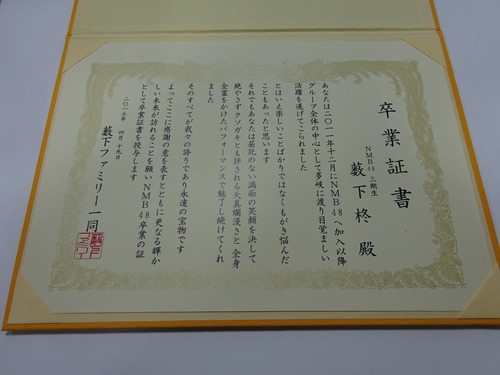 卒業証書
NMB48 三期生
藪下柊 殿
あなたは二〇一一年十二月にNMB48へ加入以降
グループ全体の中心として多岐に渡り目覚ましい
活躍を遂げてこられました
とはいえ楽しいことばかりではなくもがき悩んだ
こともあったと思います
それでもあなたは屈託のない満面の笑顔を決して
絶やさずクソガキとも評される天真爛漫さと全身
全霊をかけたパフォーマンスで魅了し続けてくれ
ました
そのすべてが我々の誇りであり永遠の宝物です
よってここに感謝の意を表すとともに更なる輝か
しい未来が訪れることを願いNMB48卒業の証
として卒業証書を授与します
二〇一七年 四月十九日
藪下ファミリー一同